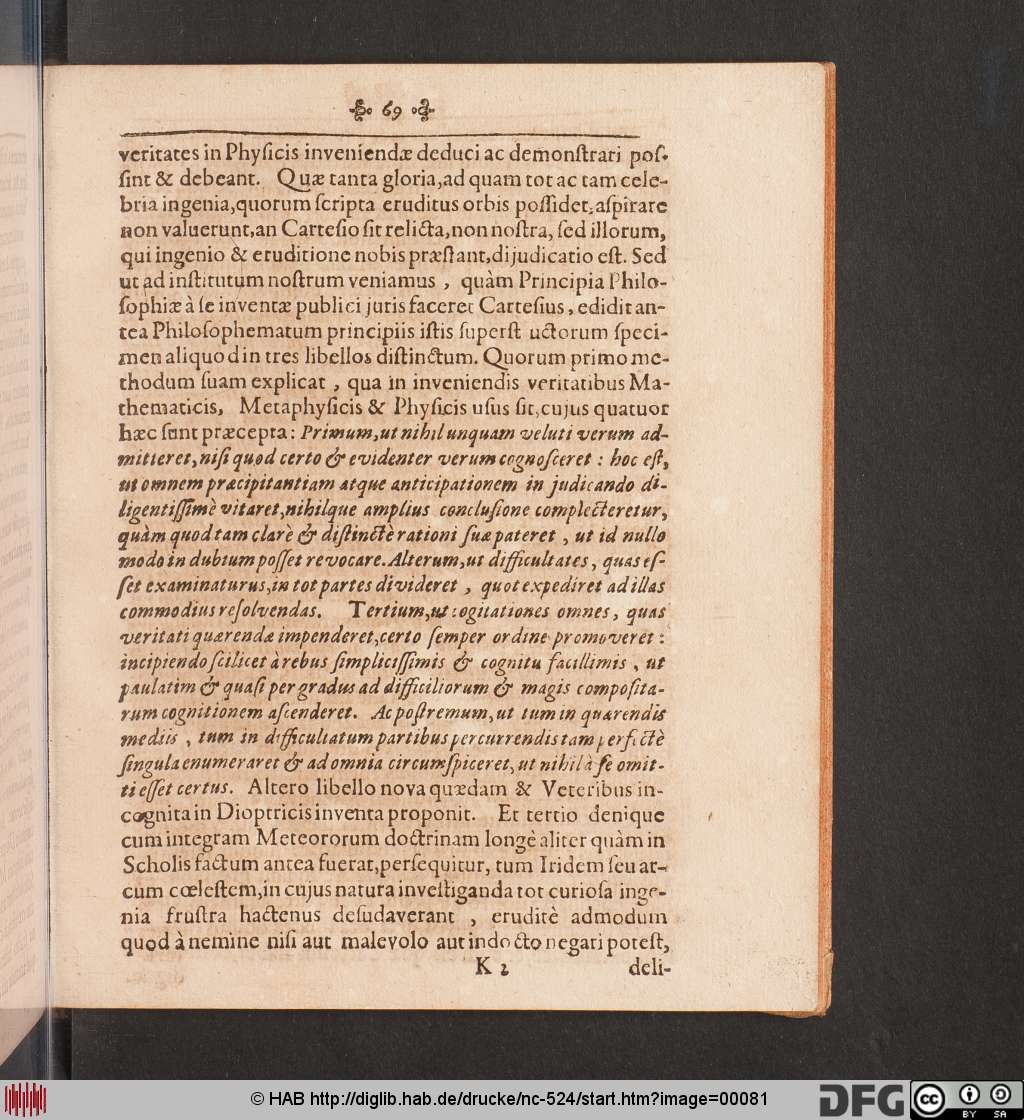 69
veritates in Phyſicis inveniendæ deduci ac demonſtrari poſ-
ſint & debeant. Quæ tanta gloria,ad quam tot ac tam cele-
bria ingenia,quorum ſcripta eruditus orbis poſſidet,aſpirare
non valuerunt,an Carteſio ſit relicta,non noſtra, ſed illorum,
qui ingenio & eruditione nobis præſtant,dijudicatio eſt. Sed
ut ad inſtitutum noſtrum veniamus , quàm Principia Philo-
ſophiæ à ſe inventæ publici juris faceret Carteſius, edidit an-
tea Philoſophematum principiis iſtis ſuperſt uctorum ſpeci-
men aliquod in tres libellos diſtinctum. Quorum primo me-
thodum ſuam explicat , qua in inveniendis veritatibus Ma-
thematicis, Metaphyſicis & Phyſicis uſus ſit,cujus quatuor
hæc ſunt præcepta: Primum,ut nihil unquam veluti verum ad-
mitteret,niſi quod certo & evidenter verum cognoſceret : hoc eſt,
ut omnem præcipitantiam atque anticipationem in judicando di-
ligentiſſimè vitaret,nihilque amplius concluſione complecteretur,
quàm quod tam clarè & diſtinctè rationi ſuæ pateret , ut id nullo
modo in dubium poſſet revocare. Alterum,ut difficultates, quas eſ-
ſet examinaturus,in tot partes divideret , quot expediret ad illas
commodius reſolvendas. Tertium,ut cogitationes omnes, quas
veritati quærendæ impenderet,certo ſemper ordine promoveret :
incipiendo ſcilicet à rebus ſimpliciſſimis & cognitu facillimis , ut
paulatim & quaſi per gradus ad difficiliorum & magis compoſita-
rum cognitionem aſcenderet. Ac poſtremum,ut tum in quærendis
mediis , tum in difficultatum partibus percurrendis tam perfectè
ſingula enumeraret & ad omnia circumſpiceret,ut nihil à ſe omit-
ti eſſet certus. Altero libello nova quædam & Veteribus in-
cognita in Dioptricis inventa proponit. Et tertio denique
cum integram Meteororum doctrinam longè aliter quàm in
Scholis factum antea fuerat,perſequitur, tum Iridem ſeu ar-
cum cœleſtem,in cujus natura inveſtiganda tot curioſa inge-
nia fruſtra hactenus deſudaverant , eruditè admodum
quod à nemine niſi aut malevolo aut indocto negari poteſt,
K 2 deli-
© HAB http://diglib.hab.de/drucke/nc-524/start.htm?image=00081
DFG
cc BY SA